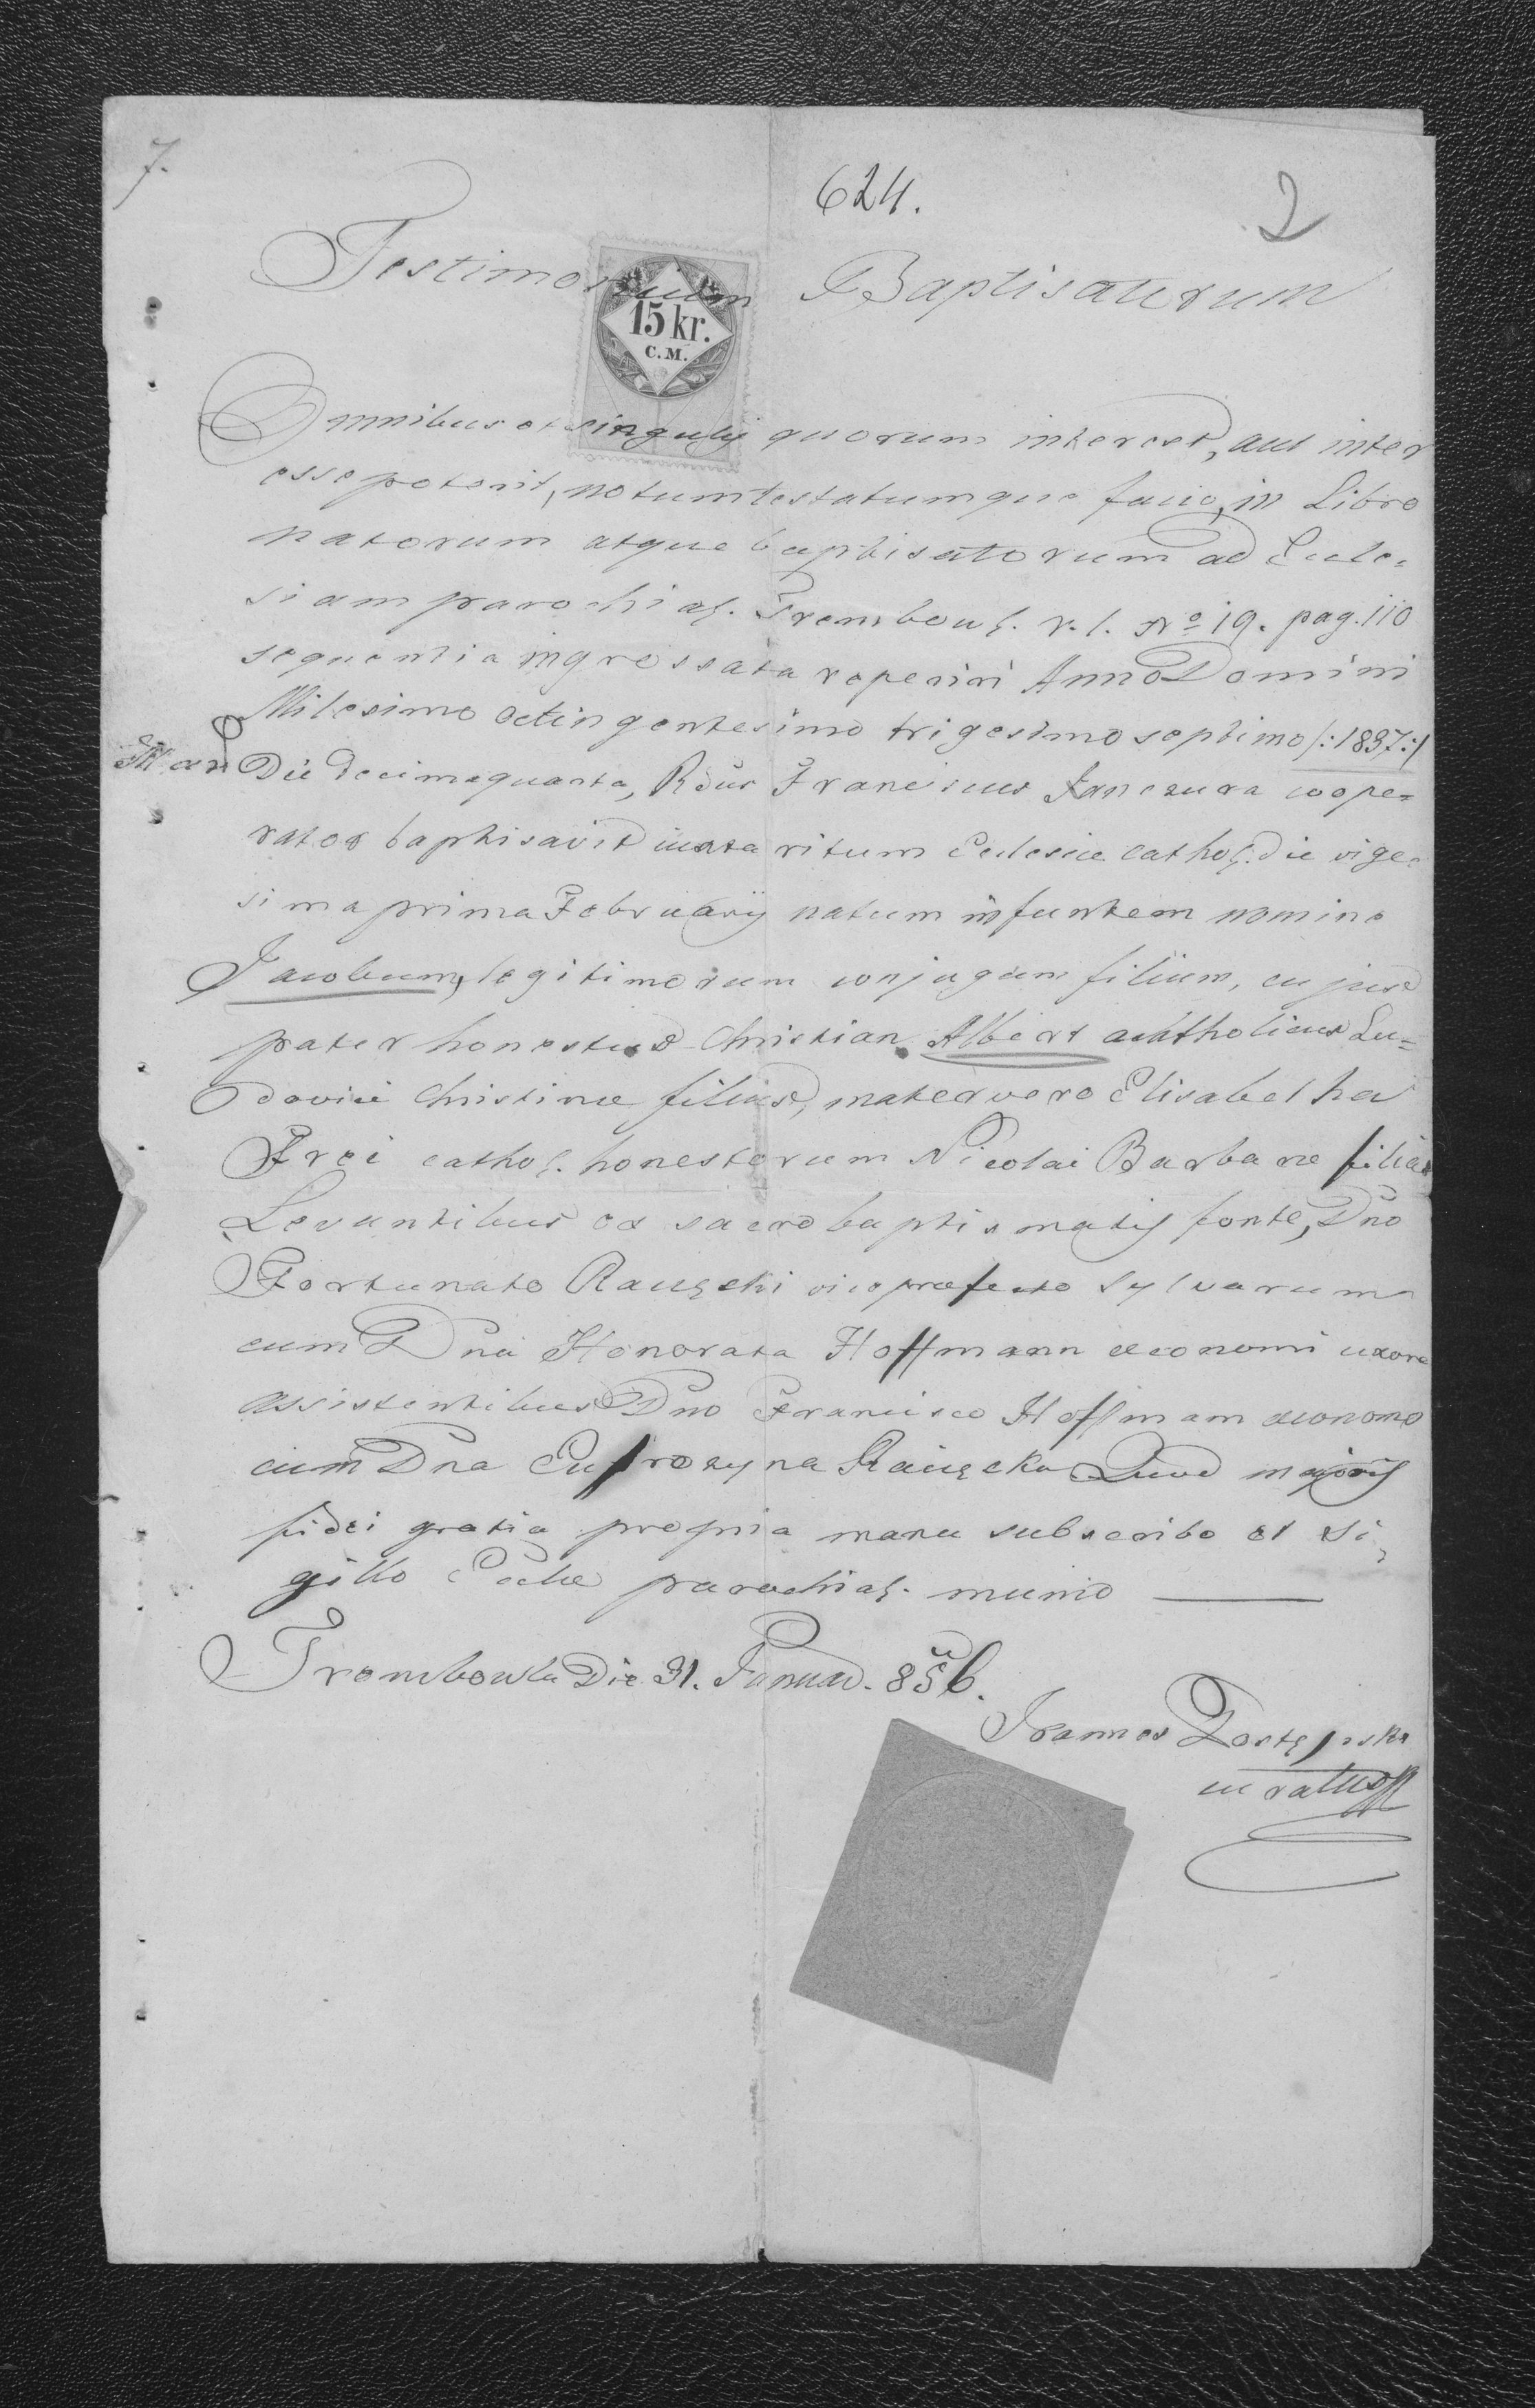 7.
624.
2
Testimonium Baptisatorum
15 kr.
C.M.
Omnibus et singulis quorum interest, aut inter
esse poterit, notum testatumque facio, in Libro
natorum atque baptisatorum ad Eccle=
siam parochial. Trembowl. r. l. No 19. pag. 110
sequentia ingressata reperiri Anno Domini
Milesimo octingentesimo trigesimo septimo /:1837:/
Die decimaquarta, Rdus Franciscus Janczura coope=
rator baptisavit iuxta ritum Eclesiae cathol. die vige=
sima prima Februarij natum infantem nomine
Jacobum, legitimorum conjugum filium, cujus
pater honestus Christian Albert acatholicus Lu=
dovici Christinae filius, mater vero Elisabetha
Frei cathol. honestorum Nicolai Barbarae filia
Levantibus ex sacro baptismatis fonte, Dno
Fortunato Racięcki viceprefecto sylvarum
cum Dna Honorata Hoffmann oeconomi uxore
assistentibus Dno Francisco Hoffmann oeconomo
cum Dna Eufrozyna Racięcka Quod majoris
fidei gratia propria manu subscribo et si=
gillo Eccliae parochial. munio
Trembowla Die 31. Januar. 856.
Joannes
curatus